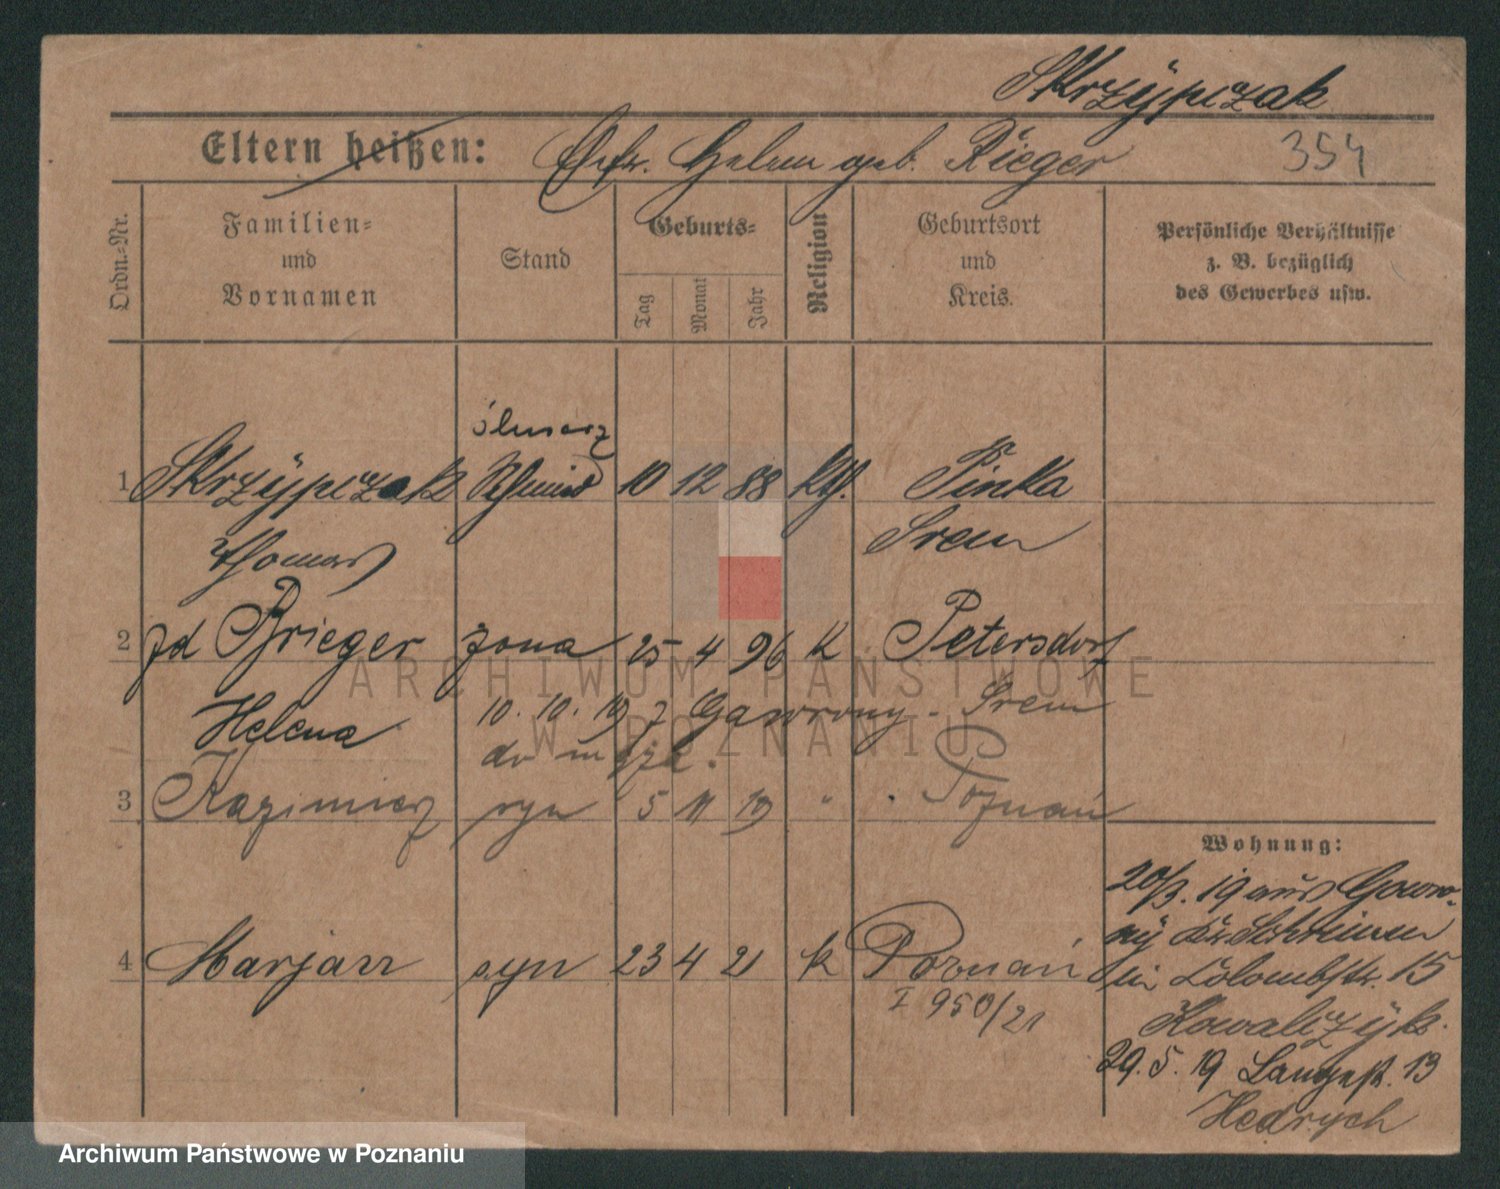 Skrzypczak
Eltern heißen: Ehefr. Helene geb. Rieger 354
Ordn.-Nr.
Familien-
und
Vornamen
Stand
Geburts-
Tag
Monat
Jahr
Religion
Geburtsort
und
Kreis.
Persönliche Verhältnisse
z. B. bezüglich
des Gewerbes usw.
ślusarz
1 Skrzypczak Schmied 10 12 88 kth. Pinka
Thomas Srem
2 zd Brieger żona 25 4 96 K Petersdorf
Helena 10. 10. 19 z Gawrony - Srem
do męża.
3 Kazimierz syn 5 11 19 " " Poznań
4 Marjan syn 23 4 21 k Poznań
I 950/21
Wohnung:
20/3. 19 aus Gawro-
ny Kr. Schrimm
in Colombstr. 15
Kowalczyk.
29. 5. 19 Langestr. 13
Hedrych
ARCHIWUM PAŃSTWOWE
W POZNANIU
Archiwum Państwowe w Poznaniu